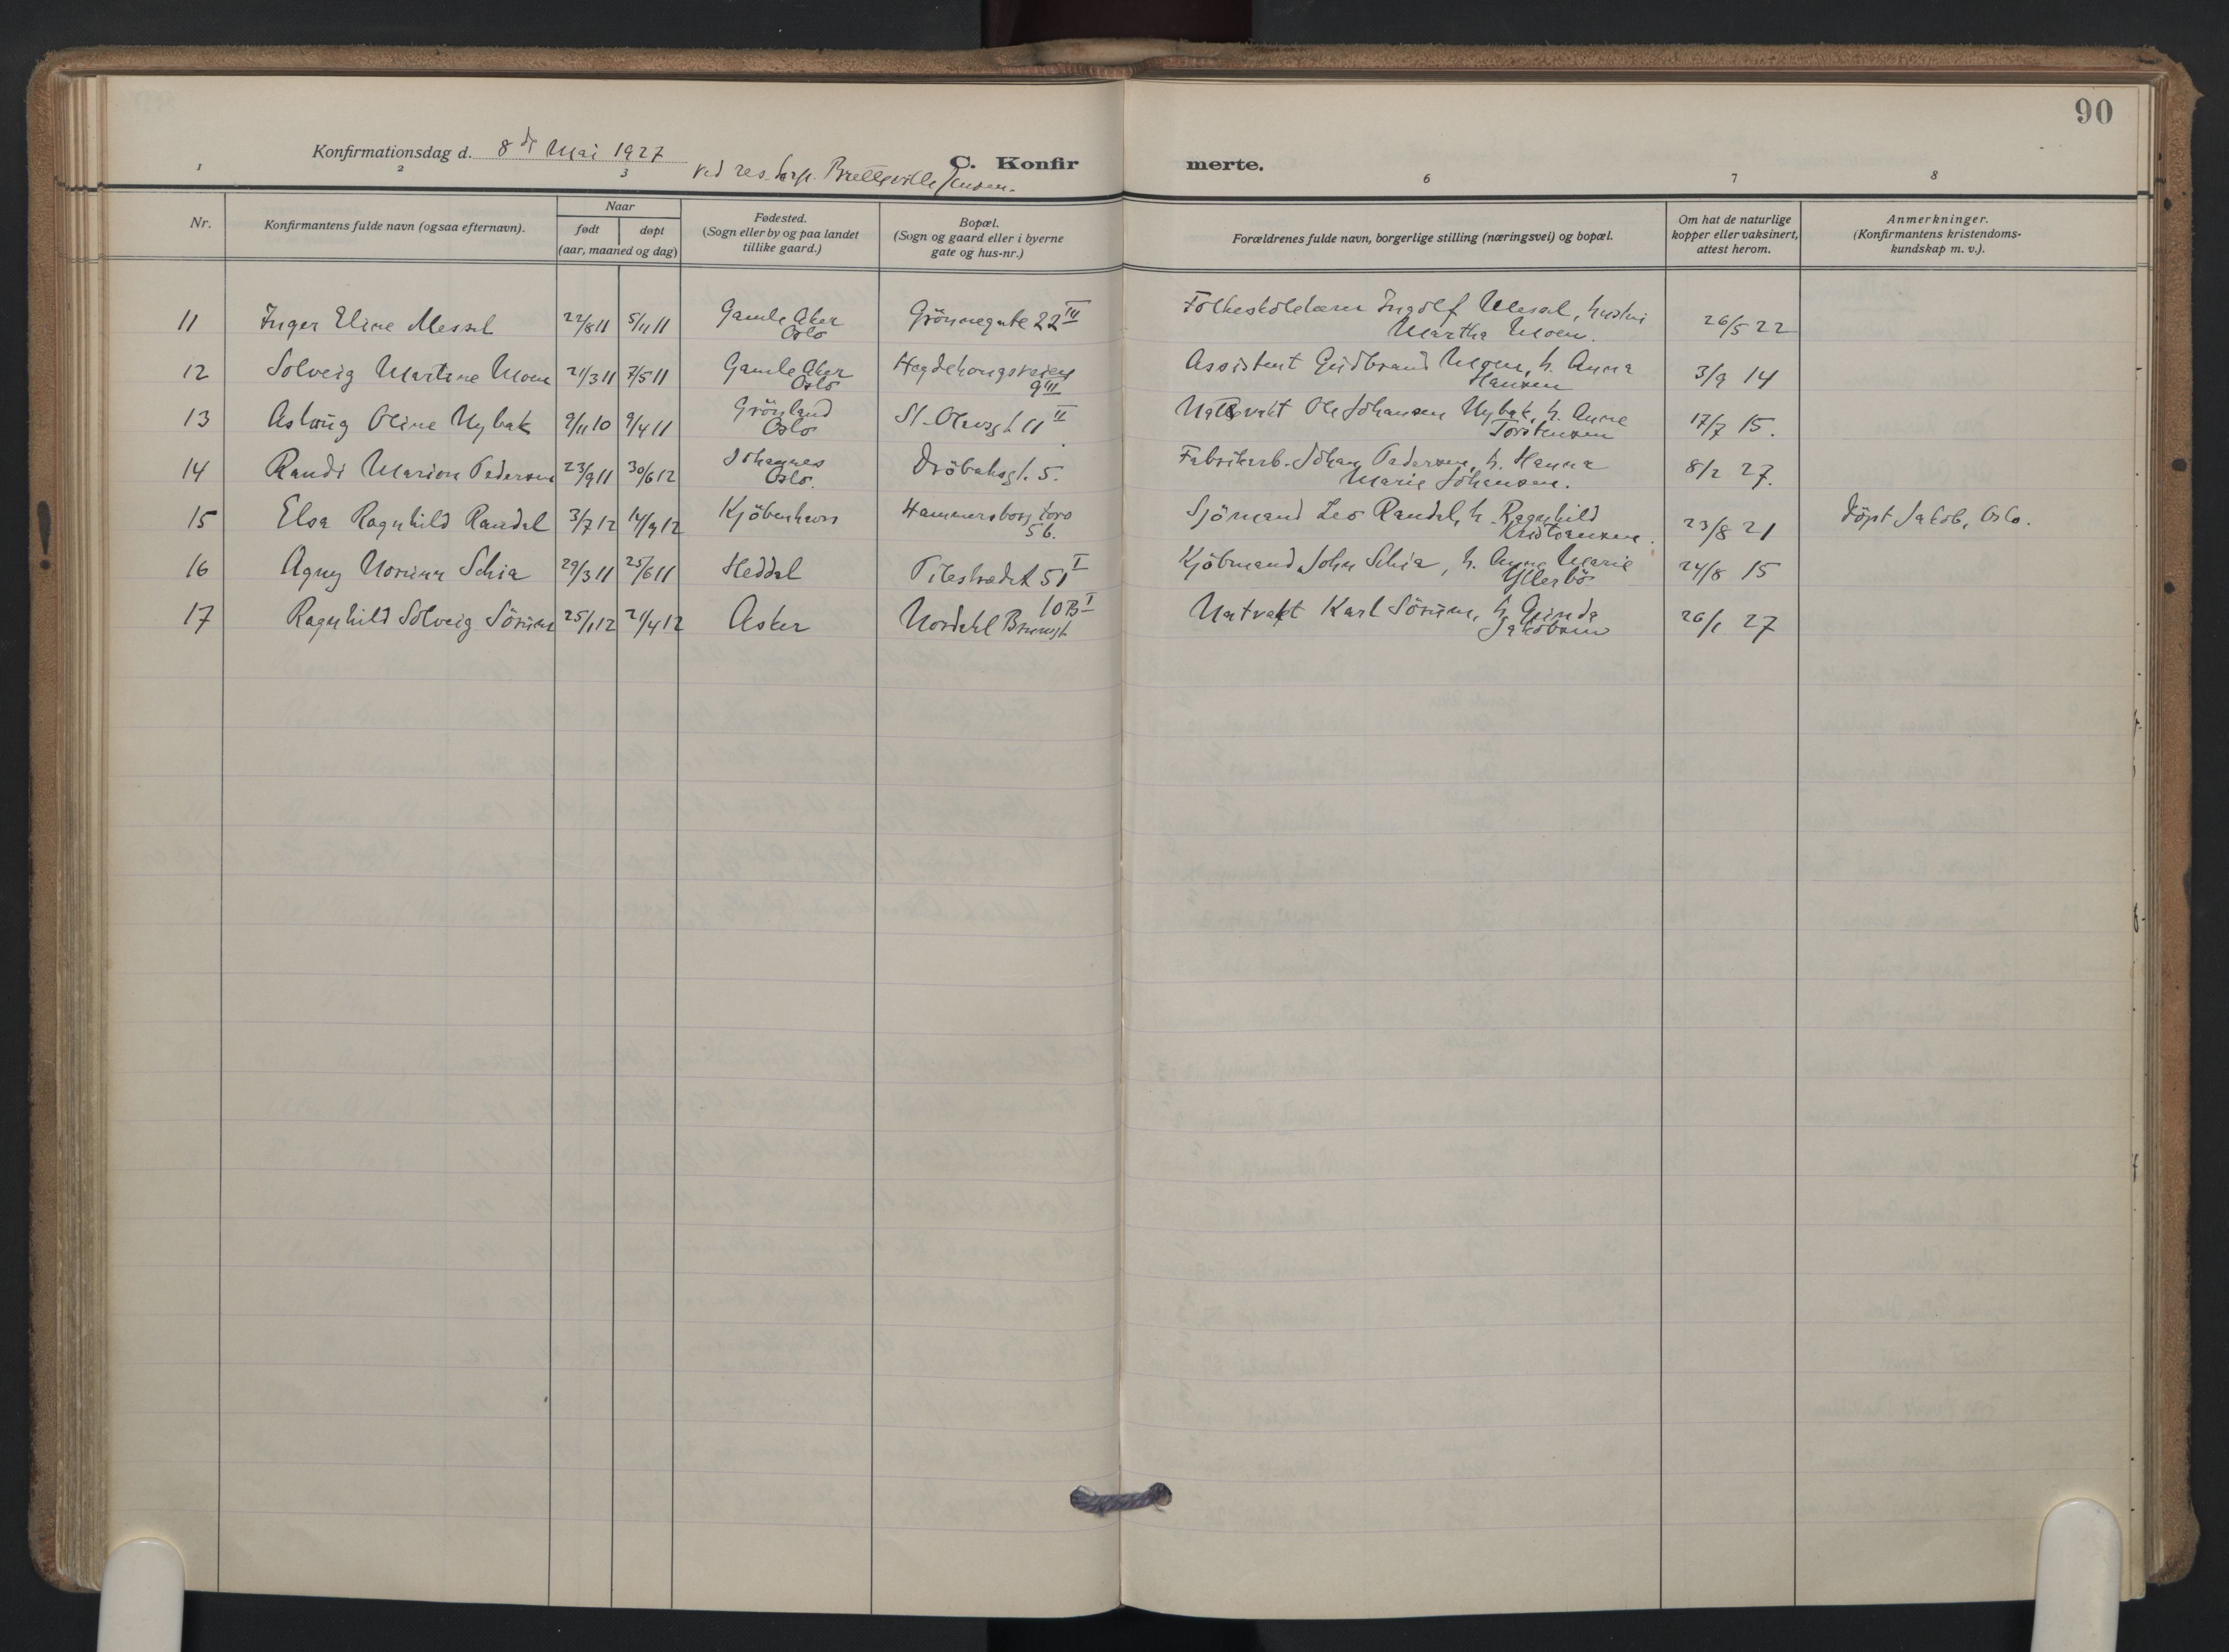 90
Konfirmationsdag d. 8de Mai 1927
ved res. kap. Bretteville Jensen.
C. Konfirmerte.
1 2 3 6 7 8
Nr.
Konfirmantens fulde navn (ogsaa efternavn).
Naar
født døpt
(aar, maaned og dag)
Fødested.
(Sogn eller by og paa landet
tillike gaard.)
Bopæl.
(Sogn og gaard eller i byerne
gate og hus-nr.)
Forældrenes fulde navn, borgerlige stilling (næringsvei) og bopæl.
Om hat de naturlige
kopper eller vaksinert,
attest herom.
Anmerkninger.
(Konfirmantens kristendoms-
kundskap m. v.).
11 Inger Eline Messel 22/8 11 5/11 11 Gamle Aker Grönnegate 22 III Ingolf Messel, hustru 26/5 22
Oslo Martha Moen.
12 Solveig Martine Moen 21/3 11 7/5 11 Gamle Aker Hegdehaugsveien Assistent Gudbrand Moen, h. Anna 3/9 14
Oslo 9 III Hansen
13 Aslaug Oline Nybak 9/11 10 9/4 11 Grönland St. Olavsgt 11 II Natvakt Ole Johansen Nybak, h. Anne 17/7 15.
Oslo Torstensen
14 Randi Marion Pedersen 23/9 11 30/6 12 Johannes Dröbaksgt. 5. Fabrikarb. Johan Pedersen, h. Hanna 8/2 27.
Oslo. Marie Johansen.
15 Elsa Ragnhild Randal 3/7 12 14/9 12 Kjöbenhavn Hammersborg torv Sjömand Leo Randal, h. Ragnhild 23/8 21 döpt Jakob, Oslo.
5b. Kristiansen.
16 Agny Norunn Schia 29/3 11 25/6 11 Heddal Pilestrædet 51 I Kjöbmand John Schia, h. Anna Marie 24/8 15
Ytterbö
17 Ragnhild Solveig Sörum 25/1 12 21/4 12 Asker Nordahl Brunsgt 10B I Natvakt Karl Sörum, h. Gunda 26/1 27
Jakobsen